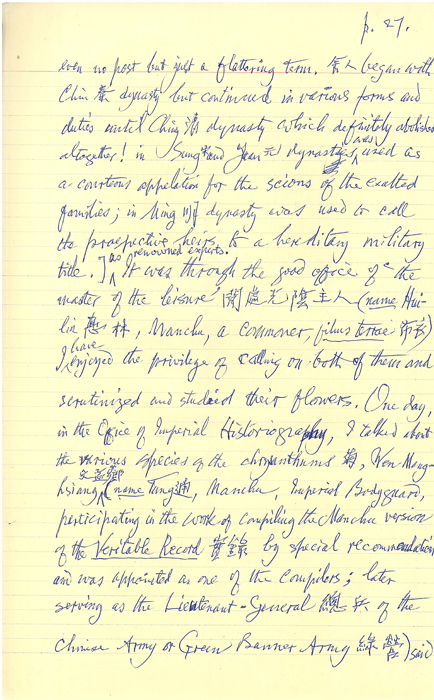 p. 27.
even no post but just a flattering term. 舍人 began with
Chin 秦 dynasty but continued in various forms and
duties until Ching 清 dynasty which definitely abolished
altogether! in Sung 宋 and Yuan 元 dynasty, was used as
a courteous appelation for the scions of the exalted
families; in Ming 明 dynasty was used to call
the prospective heirs to a hereditary military
title.] as renowned experts. It was through the good office of the
master of the leisure 主人 (name Hui-
lin 林, Manchu, a commoner, filius terrae)
I have enjoyed the privilege of calling on both of them and
scrutinized and studied their flowers. One day,
in the Office of Imperial Historiography, I talked about
the various species of the chrysanthums 菊, Wen Meng-
hsiang (name Tung, Manchu, Imperial Bodyguard,
participating in the work of compiling the Manchu version
of the Veritable Record 實錄 by special recommendation
and was appointed as one of the compilers; later
serving as the Lieutenant-General 總兵 of the
Chinese Army or Green Banner Army 綠營) said